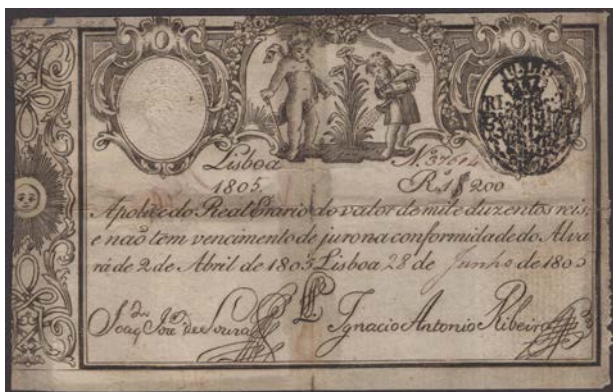 Lisboa N. 37614
1805. Rˢ 1$200
Apolice do Real Erario do valor de mil e duzentos reis,
e não tem vencimento de juro na conformidade do Alva
rá de 2 de Abril de 1805 Lisboa 28 de Junho de 1805
Joaq Joze de Souza Ignacio Antonio Ribeiro